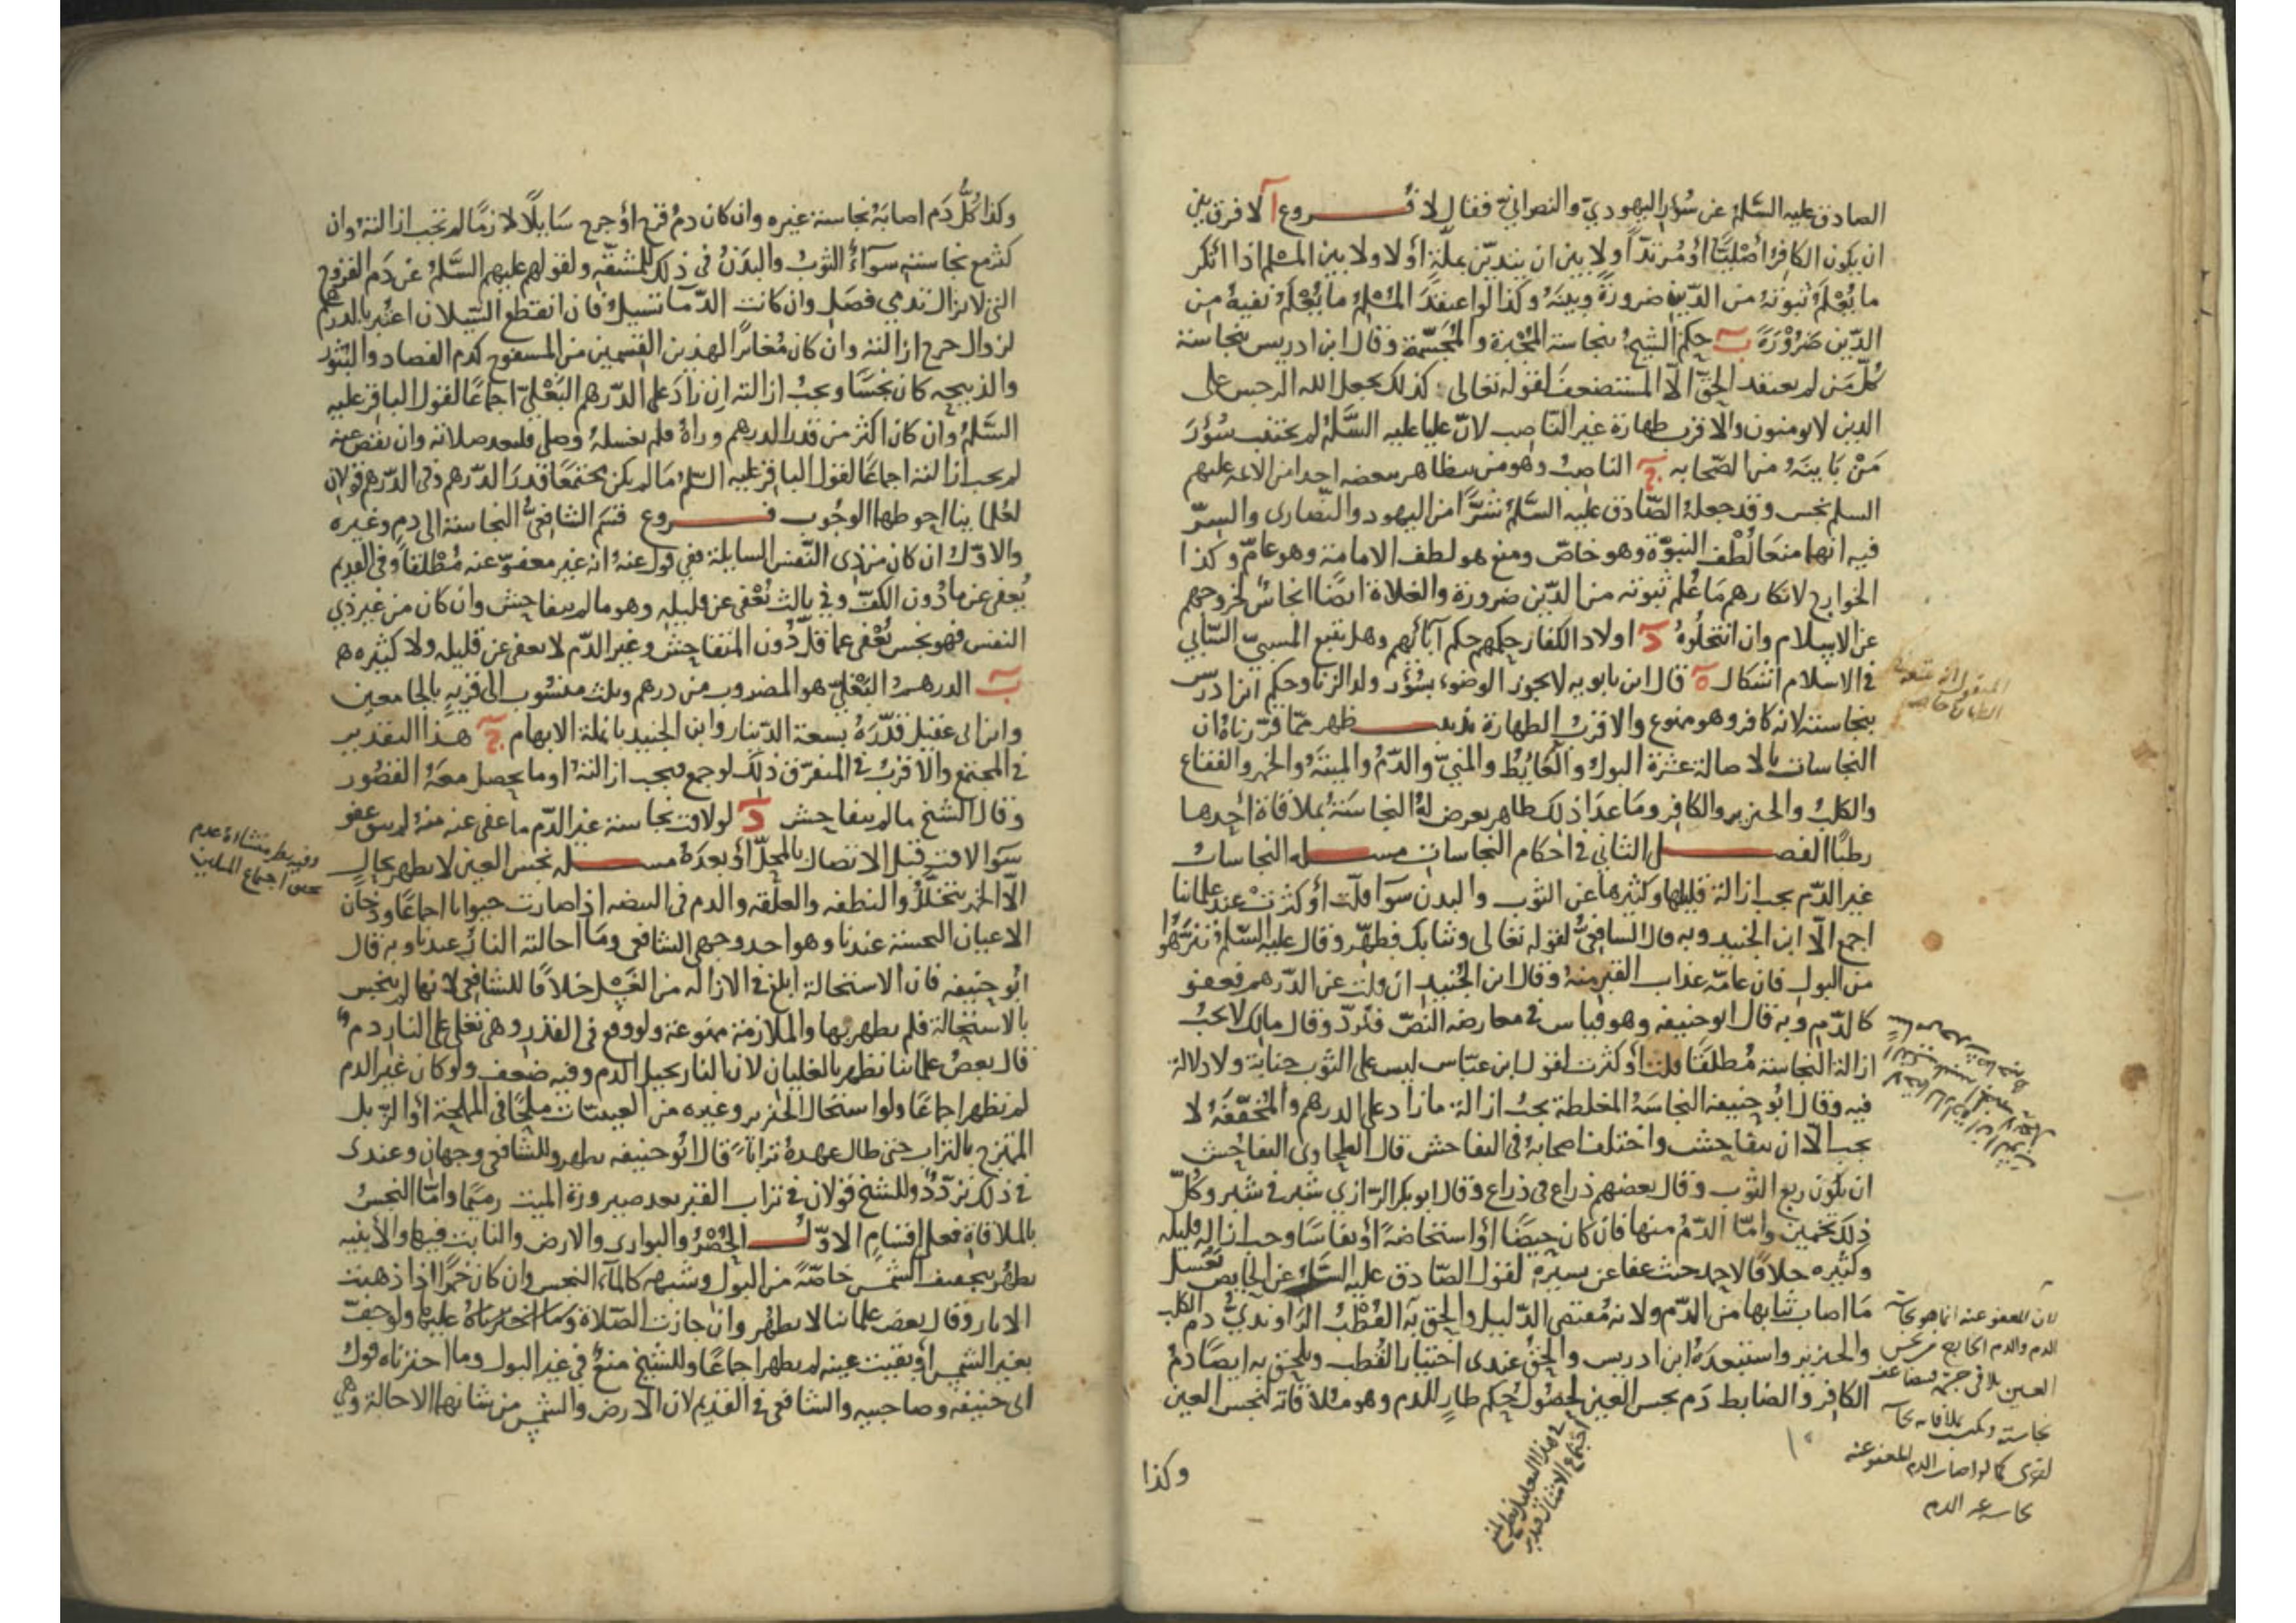 الصادق عليه السلم عن سؤر اليهودي والنصراني فقال لا فروع آ لا فرق بين
ان يكون الكافر أصليا أو مرتدا ولا بين ان يتدين بملة أولا ولا بين المسلم اذا انكر
ما يعلم ثبوته من الدين ضرورة وبينه وكذا لو اعتقد المسلم ما يعلم نفيه من
الدين ضرورة ب حكم الشيخ بنجاسة المجبرة والمجسمة وقال ابن ادريس بنجاسة
كل من لم يعتقد الحق الا المستضعف لقوله تعالى كذلك يجعل الله الرجس على
الذين لا يومنون والاقرب طهارة غير الناصب لان عليا عليه السلم لم يجتنب سؤر
من باينه من الصحابه ج الناصب وهو من يتظاهر ببغضه احدا من الائمه عليهم
السلم نجس وقد جعله الصادق عليه السلم شرا من اليهود والنصارى والسر
فيه انهما منعا لطف النبوة وهو خاص ومنع هو لطف الامامة وهو عام وكذا
الخوارج لانكارهم ما علم ثبوته من الدين ضرورة والغلاة ايضا انجاس لخروجهم
عن الاسلام وان انتحلوه د اولاد الكفار حكمهم حكم آبائهم وهل يتبع المسبي السابي
في الاسلام اشكال ه قال ابن بابويه لا يجوز الوضوء بسؤر ولد الزنا وحكم ابن ادريس
بنجاسته لانه كافر وهو ممنوع والاقرب الطهارة تذنيب ظهر مما قررناه ان
النجاسات بالاصالة عشرة البول والغائط والمني والدم والميتة والخمر والفقاع
والكلب والخنزير والكافر وما عدا ذلك طاهر يعرض له النجاسة بملاقاة احدها
رطبا الفصل الثاني في احكام النجاسات مسله النجاسات
غير الدم يجب ازالة قليلها وكثيرها عن الثوب والبدن سوا قلت أو كثرت عند علمائنا
اجمع الا ابن الجنيد وبه قال الشافعي لقوله تعالى وثيابك فطهر وقال عليه السلم تنزهوا
من البول فان عامة عذاب القبر منه وقال ابن الجنيد ان قلت عن الدرهم فعفو
كالدم وبه قال ابو حنيفه وهو قياس في معارضه النص فترد وقال مالك لا يجب
ازالة النجاسة مطلقا قلت أو كثرت لقول ابن عباس ليس على الثوب جنابة ولا دلالة
فيه وقال ابو حنيفة النجاسة المغلظة يجب ازالة ما زاد على الدرهم والمخففة لا
يجب الا ان يتفاحش واختلف اصحابه في التفاحش قال الطحاوى التفاحش
ان يكون ربع الثوب وقال بعضهم ذراع في ذراع وقال ابو بكر الرازي شبر في شبر وكل
ذلك تخمين واما الدم منها فان كان حيضا أو استحاضة أو نفاسا وجب ازالة قليله
وكثيره خلافا لاحمد حيث عفا عن يسيره لقول الصادق عليه السلم عن الحايض تغسل
ما اصاب ثيابها من الدم ولانه مقتضى الدليل والحق به القطب الراوندي دم الكلب
والخنزير واستبعده ابن ادريس والحق عندى اختيار القطب ويلحق به ايضا دم
الكافر والضابط دم نجس العين لحصول حكم طار للدم وهو ملاقاته لنجس العين
لان المعفو عنه انما هو نجاسة
الدم والدم الخارج من نجس
العين يلاقي جسمه فيضاعف
نجاسته ويكتسب بملاقاته نجاسة
اخرى كما لو اصاب الدم المعفو عنه
نجاسه غير الدم
وكذا
وكذا كل دم اصابه نجاسة غيره وان كان دم قرح أو جرح سايلا لازما لم تجب ازالته وان
كثر مع نجاسته سواء الثوب والبدن في ذلك للمشقة ولقولهم عليهم السلم عن دم القروح
التي لا يزال تدمي فصل وان كانت الدما تسيل فان انقطع السيلان اعتبر بالدرهم
لزوال حرج ازالته وان كان مغايرا لهذين القسمين من المسفوح كدم الفصاد والبثور
والذبيحه كان نجسا ويجب ازالته ان زاد على الدرهم البغلي اجماعا لقول الباقر عليه
السلم وان كان اكثر من قدر الدرهم وراه فلم يغسله وصلى فليعد صلاته وان نقص عنه
لم يجب ازالته اجماعا لقول الباقر عليه السلم ما لم يكن مجتمعا قدر الدرهم وفي الدرهم قولان
لعلمائنا احوطهما الوجوب فروع قسم الشافعي النجاسة الى دم وغيره
والاول ان كان من ذى النفس السايلة ففي قول عنه انه غير معفو عنه مطلقا وفي القديم
يعفى عن ما دون الكف وفي ثالث يعفى عن قليله وهو ما لم يتفاحش وان كان من غير ذي
النفس فهو نجس يعفى عما قل دون المتفاحش وغير الدم لا يعفى عن قليله ولا كثيره
ب الدرهم البغلي هو المضروب من درهم وثلث منسوب الى قرية بالجامعين
وابن ابي عقيل قدره بسعة الدينار وابن الجنيد بانملة الابهام ج هذا التقدير
في المجتمع والاقرب في المتفرق ذلك لو جمع فيجب ازالته او ما يحصل معه القصور
وقال الشيخ ما لم يتفاحش د لو لاقت نجاسة غير الدم ما عفي عنه منه لم يبق عفو
سوا لاقت قبل الاتصال بالمحل أو بعده مسله نجس العين لا يطهر بحال
الا الخمر يتخلل والنطفه والعلقه والدم في البيضه اذا صارت حيوانا اجماعا ودخان
الاعيان النجسة عندنا وهو احد وجهي الشافعي وما احالته النار عندنا وبه قال
ابو حنيفه فان الاستحالة ابلغ في الازاله من الغسل خلافا للشافعي لانها لم ينجس
بالاستحالة فلم يطهر بها والملازمة ممنوعة ولو وقع في القدر وهي تغلي على النار دم
قال بعض علمائنا تطهر بالغليان لان النار يحيل الدم وفيه ضعف ولو كان غير الدم
لم تطهر اجماعا ولو استحال الخنزير وغيره من العينيات ملحا في المملحة أو الزبل
الممتزج بالتراب حتى طال عهده ترابا قال ابو حنيفه يطهر وللشافعي وجهان وعندى
في ذلك تردد وللشيخ قولان في تراب القبر بعد صيرورة الميت رميما واما النجس
بالملاقاة فعلى اقسام الاول الحصر والبوارى والارض والثابت فيها والأبنيه
يطهر بتجفيف الشمس خاصة من البول وشبهه كالماء النجس وان كان خمرا اذا ذهبت
الاثار وقال بعض علمائنا لا يطهر وان جازت الصلاة عليها ولو جف
بغير الشمس أو بقيت عينه لم يطهر اجماعا وللشيخ منع في غير البول وما اخترناه قول
ابى حنيفه وصاحبيه والشافعي في القديم لان الارض والشمس من شانهما الاحالة وهي